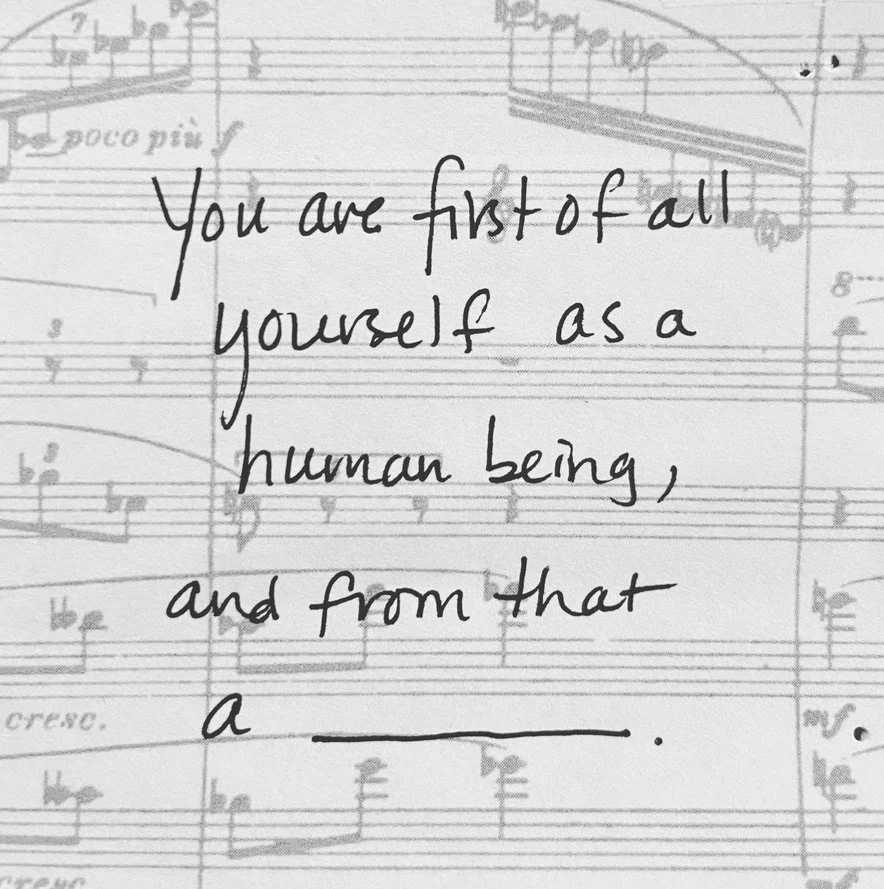 7
poco più f
You are first of all
8
yourself as a
3
human being,
3
and from that
cresc.
a ________.
mf
cresc.
mf